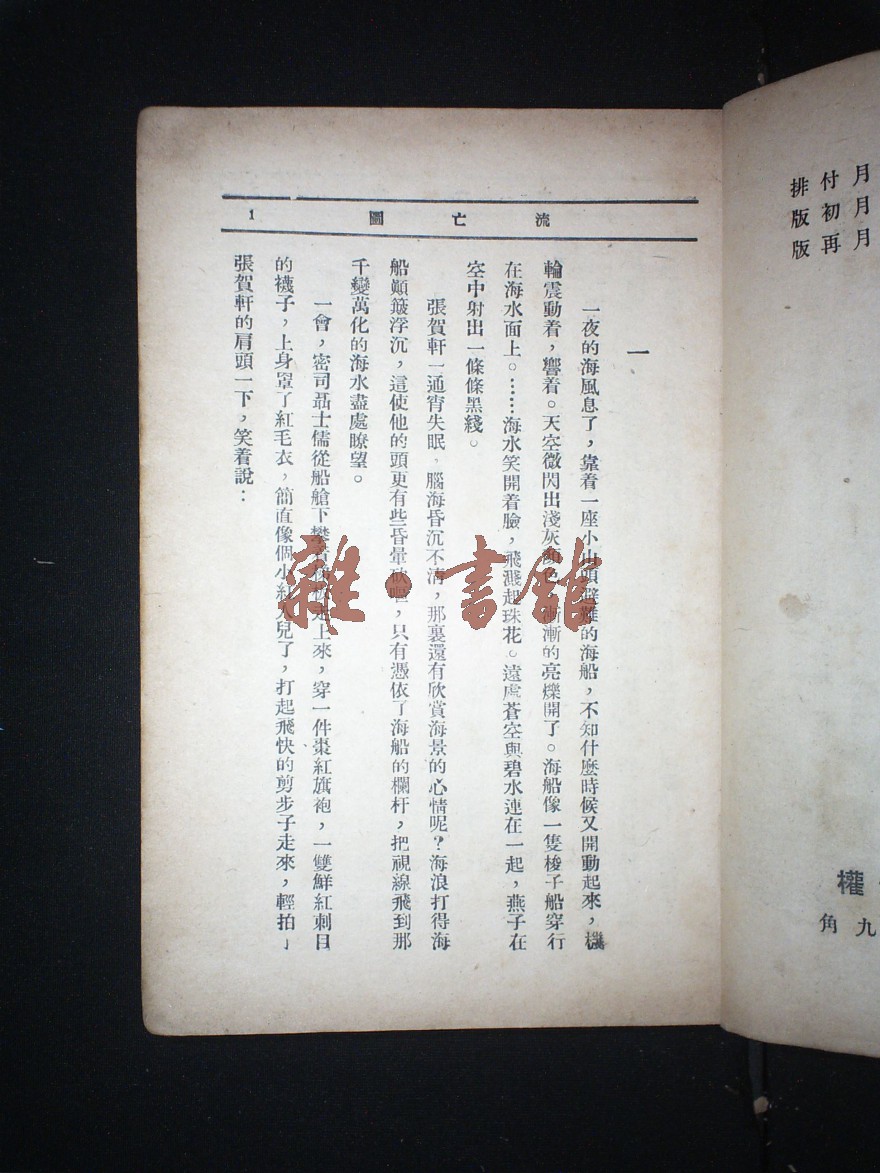 月月月
付初再
排版版
權
九角
流亡圖
1
一
一夜的海風息了，靠着一座小山頭避難的海船，不知什麼時候又開動起來，機
輪震動着，響着。天空微閃出淺灰顏色，漸漸的亮爍開了。海船像一隻梭子船穿行
在海水面上。……海水笑開着臉，飛濺起珠花。遠處蒼空與碧水連在一起，燕子在
空中射出一條條黑綫。
張賀軒一通宵失眠，腦海昏沉不清，那裏還有欣賞海景的心情呢？海浪打得海
船顚簸浮沉，這使他的頭更有些昏暈欲嘔，只有憑依了海船的欄杆，把視線飛到那
千變萬化的海水盡處瞭望。
一會，密司聶士儒從船艙下攀着梯走上來，穿一件棗紅旗袍，一雙鮮紅刺目
的襪子，上身罩了紅毛衣，簡直像個小紅人兒了，打起飛快的剪步子走來，輕拍了
張賀軒的肩頭一下，笑着說：
雜·書館